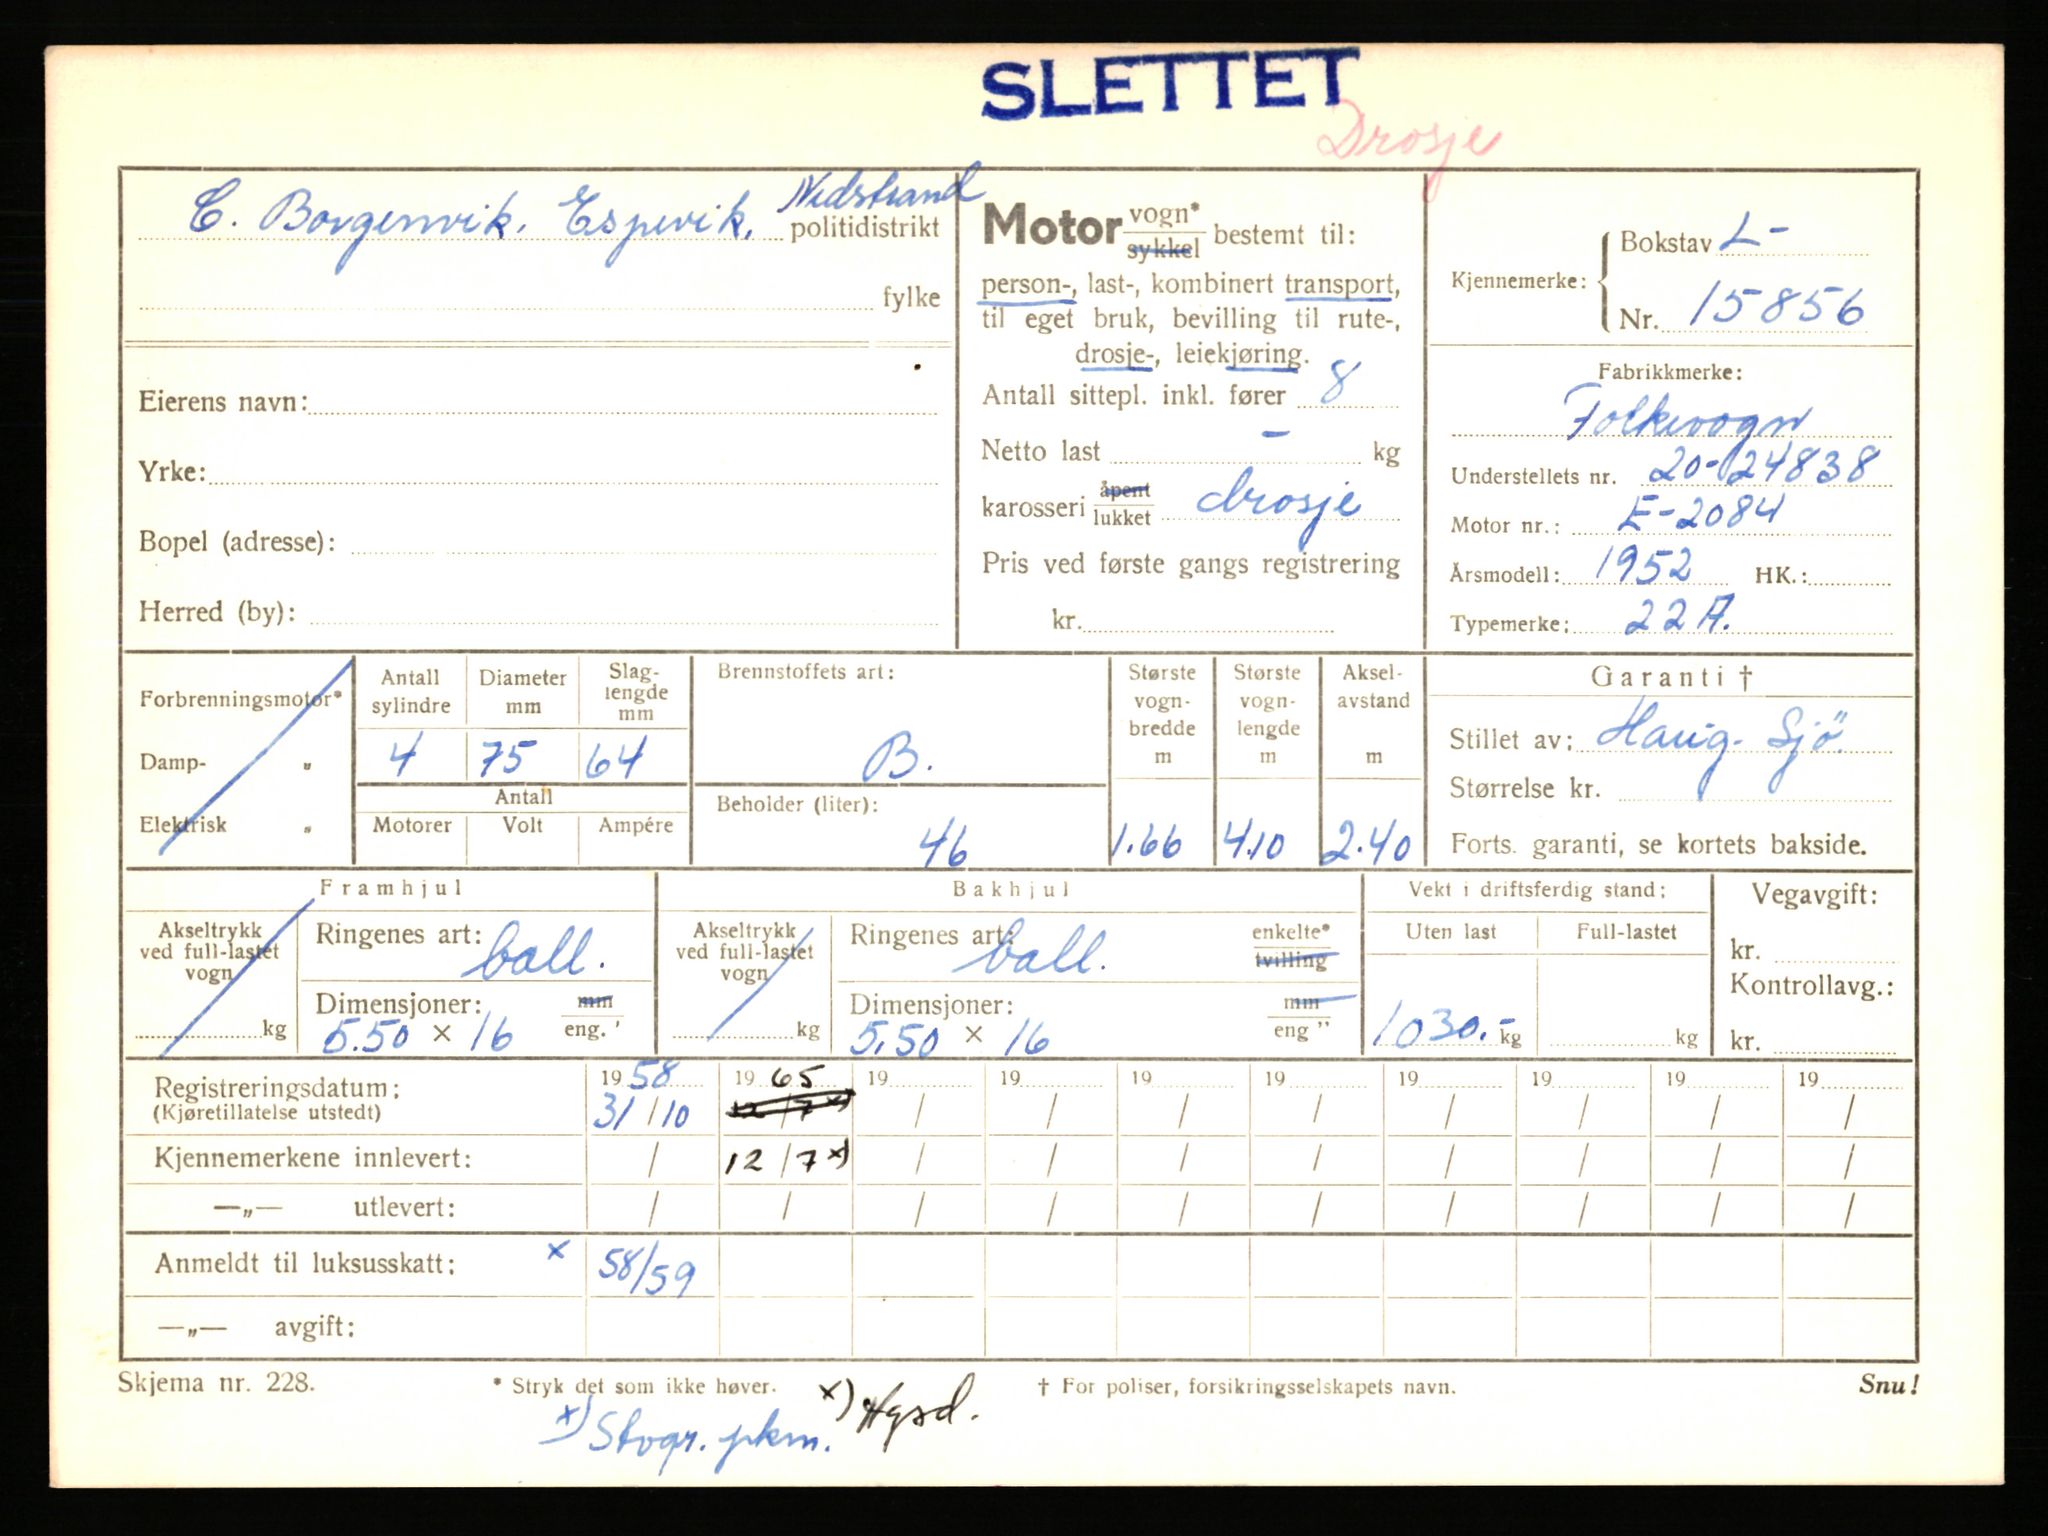 SLETTET
Drosje
C. Borgenvik. Espevik. Nedstrand politidistrikt
fylke
Eierens navn:
Yrke:
Bopel (adresse):
Herred (by):
Motor vogn* sykkel bestemt til:
person-, last-, kombinert transport,
til eget bruk, bevilling til rute-,
drosje-, leiekjøring.
Antall sittepl. inkl. fører 8
Netto last - kg
karosseri åpent lukket drosje
Pris ved første gangs registrering
kr.
Kjennemerke: Bokstav L-
Nr. 15856
Fabrikkmerke:
Folkevogn
Understellets nr. 20-024838
Motor nr.: E-2084
Årsmodell: 1952 HK.:
Typemerke: 22 A.
Forbrenningsmotor*
Damp- „
Elektrisk „
Antall sylindre
4
Diameter mm
75
Slag-lengde mm
64
Antall
Motorer Volt Ampére
Brennstoffets art:
B.
Beholder (liter):
46
Største vogn-bredde m
1.66
Største vogn-lengde m
4.10
Aksel-avstand m
2.40
Garanti †
Stillet av: Haug. Sjö.
Størrelse kr.
Forts. garanti, se kortets bakside.
Framhjul
Akseltrykk ved full-lastet vogn
kg
Ringenes art: ball.
Dimensjoner: mm
5.50 × 16 eng. '
Bakhjul
Akseltrykk ved full-lastet vogn
kg
Ringenes art: ball. enkelte* tvilling
Dimensjoner: mm
5.50 × 16 eng "
Vekt i driftsferdig stand:
Uten last Full-lastet
1030.- kg kg
Vegavgift:
kr.
Kontrollavg.:
kr.
Registreringsdatum: 19 58 19 65 19 19 19 19 19 19 19 19
(Kjøretillatelse utstedt) 31/10 12/7 x) / / / / / / / /
Kjennemerkene innlevert: / 12/7 x) / / / / / / / /
—„— utlevert: / / / / / / / / / /
Anmeldt til luksusskatt: x 58/59
—„— avgift:
Skjema nr. 228. * Stryk det som ikke høver. † For poliser, forsikringsselskapets navn. Snu!
x) Hgsd.
x) Stvgr. pkm.